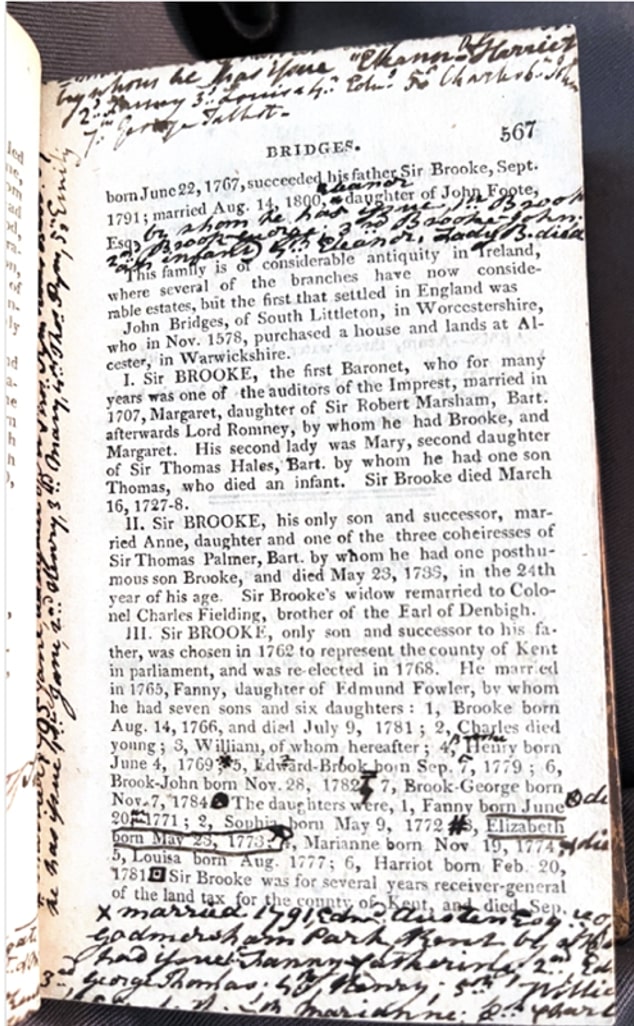 by whom he has issue "Ehann- Harriet
2d Fanny 3d Louisa 4th Edwd 5th Charles 6th John
7th George Talbot-
567
BRIDGES.
born June 22, 1767, succeeded his father Sir Brooke, Sept.
Eleanor
1791; married Aug. 14, 1800, daughter of John Foote,
Esq. by whom he has issue 1st Brook
2nd Brook 3rd Brooke-John
infant) 4th Eleanor, Lady B. died
This family is of considerable antiquity in Ireland,
where several of the branches have now conside-
rable estates, but the first that settled in England was
John Bridges, of South Littleton, in Worcestershire,
who in Nov. 1578, purchased a house and lands at Al-
cester, in Warwickshire.
I. Sir BROOKE, the first Baronet, who for many
years was one of the auditors of the Imprest, married in
1707, Margaret, daughter of Sir Robert Marsham, Bart.
afterwards Lord Romney, by whom he had Brooke, and
Margaret. His second lady was Mary, second daughter
of Sir Thomas Hales, Bart. by whom he had one son
Thomas, who died an infant. Sir Brooke died March
16, 1727-8.
II. Sir BROOKE, his only son and successor, mar-
ried Anne, daughter and one of the three coheiresses of
Sir Thomas Palmer, Bart. by whom he had one posthu-
mous son Brooke, and died May 23, 1733, in the 24th
year of his age. Sir Brooke's widow remarried to Colo-
nel Charles Fielding, brother of the Earl of Denbigh.
III. Sir BROOKE, only son and successor to his fa-
ther, was chosen in 1762 to represent the county of Kent
in parliament, and was re-elected in 1768. He married
in 1765, Fanny, daughter of Edmund Fowler, by whom
he had seven sons and six daughters: 1, Brooke born
Aug. 14, 1766, and died July 9, 1781; 2, Charles died
young; 3, William, of whom hereafter; 4, Henry born
June 4, 1769; 5, Edward-Brook born Sep. 7, 1779; 6,
Brook-John born Nov. 28, 1782; 7, Brook-George born
Nov. 7, 1784 The daughters were, 1, Fanny born June
20, 1771; 2, Sophia born May 9, 1772 3, Elizabeth
born May 23, 1773; 4, Marianne born Nov. 19, 1774
5, Louisa born Aug. 1777; 6, Harriot born Feb. 20,
1781 Sir Brooke was for several years receiver-general
of the land tax for the county of Kent, and died Sep.
x married 1791 Edwd Austen Esq
Godmersham Park Kent by
had issue Fanny Catherine 2nd Ed
3rd George Thomas: 4th Henry: 5th Willi
marianne: 8th Charl
he has issue 1st Jane, 2nd Henry, 3d Mary 4th 5th Emily